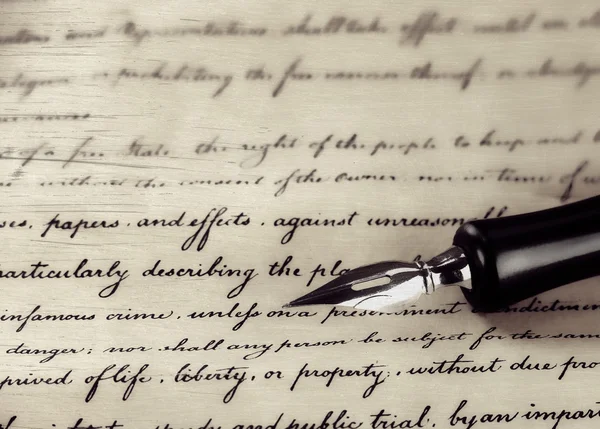 and Representatives shall take effect until an
or prohibiting the free thereof; or
of a free State, the right of the people to keep and b
without the consent of the Owner, nor in time of w
ses, papers, and effects, against unreasonabl
particularly describing the pla
infamous crime, unless on a presentment indictmen
danger; nor shall any person be subject for the same
prived of life, liberty, or property, without due pro
and public trial, by an impart